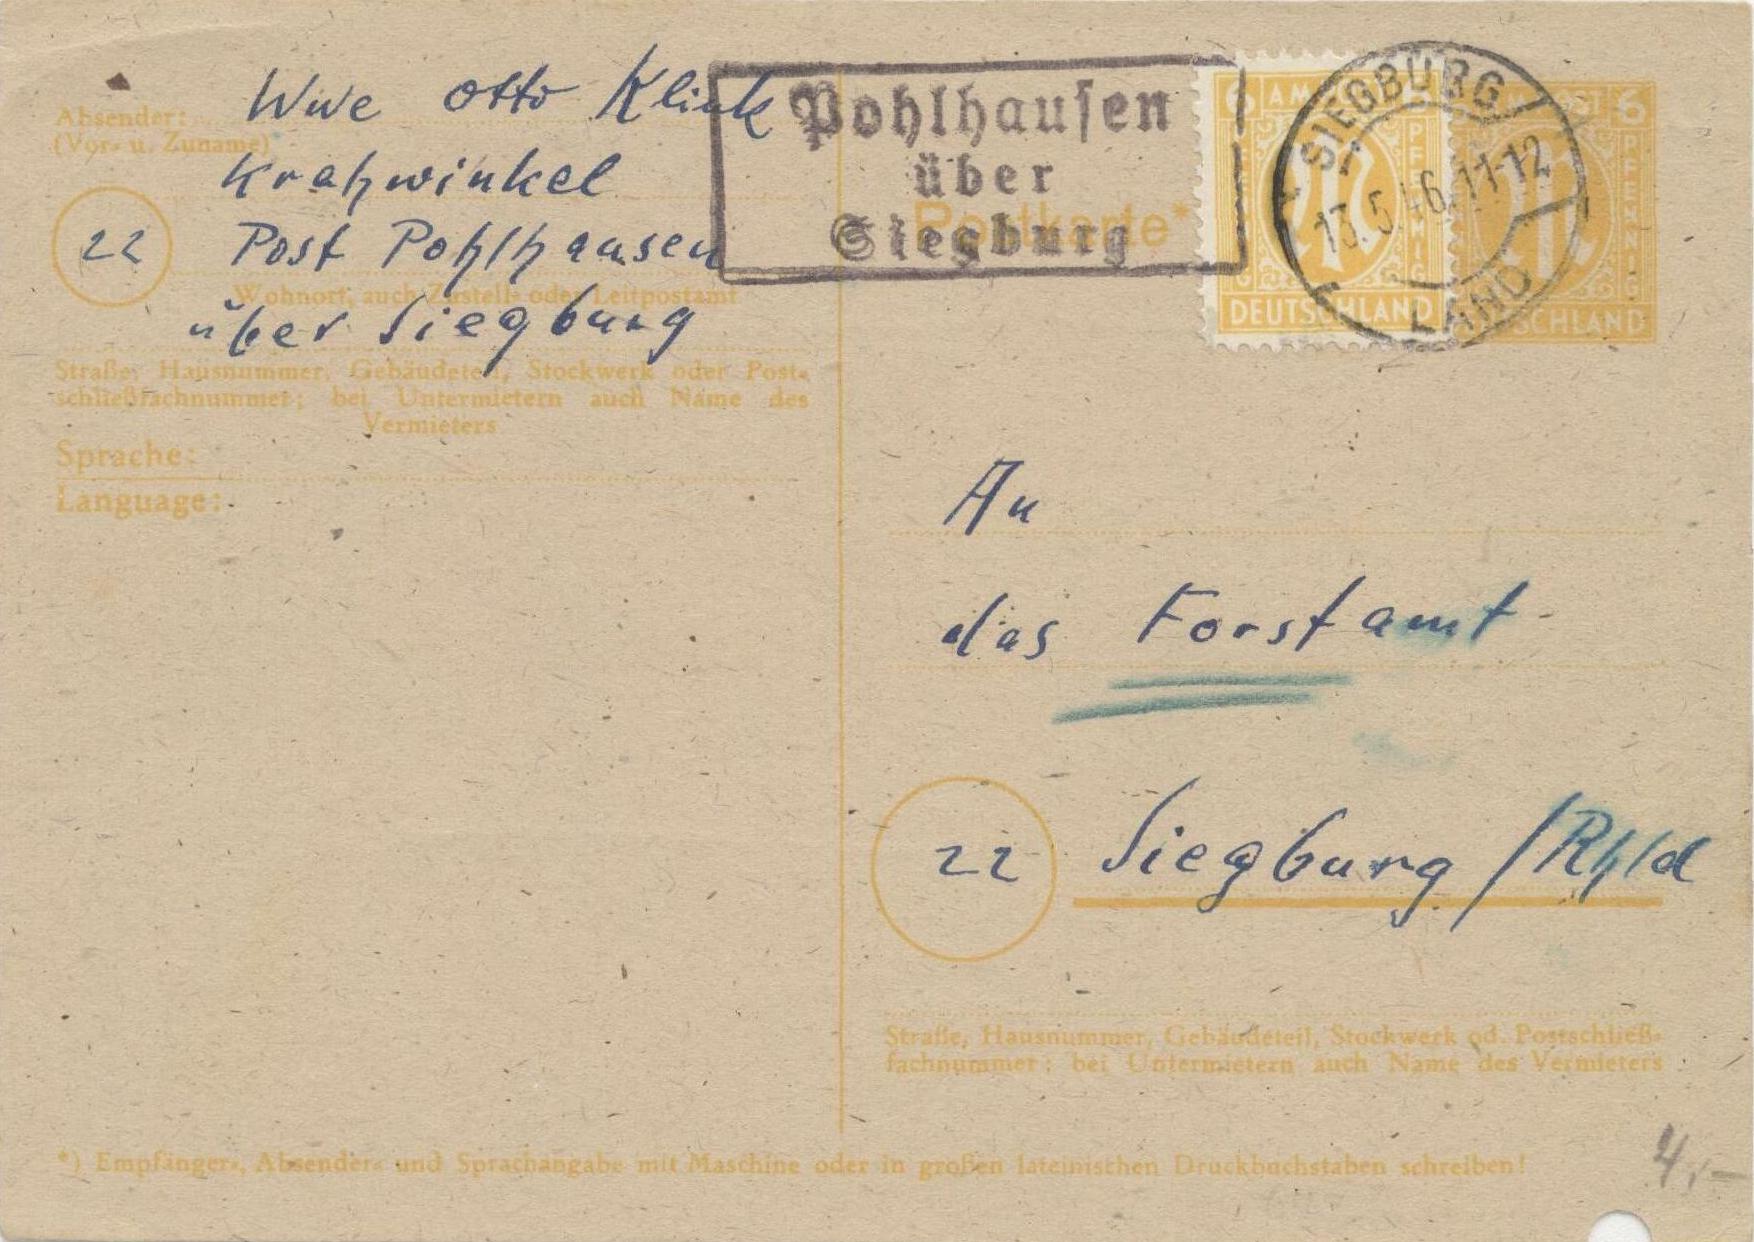 Absender:
(Vor- u. Zuname)
Wwe Otto Klink
Krahwinkel
22
Post Pohlhausen
Wohnort, auch Zustell- oder Leitpostamt
über Siegburg
Straße, Hausnummer, Gebäudeteil, Stockwerk oder Post-
schließfachnummer; bei Untermietern auch Name des
Vermieters
Sprache:
Language:
Pohlhausen
über
Siegburg
Postkarte*
6 AM POST
PFENNIG
DEUTSCHLAND
SIEGBURG
13.5.46.11-12
LAND
6
PFENNIG
An
das Forstamt
22 Siegburg /Rhld
Straße, Hausnummer, Gebäudeteil, Stockwerk od. Postschließ-
fachnummer; bei Untermietern auch Name des Vermieters
*) Empfänger-, Absender- und Sprachangabe mit Maschine oder in großen lateinischen Druckbuchstaben schreiben!
4,-